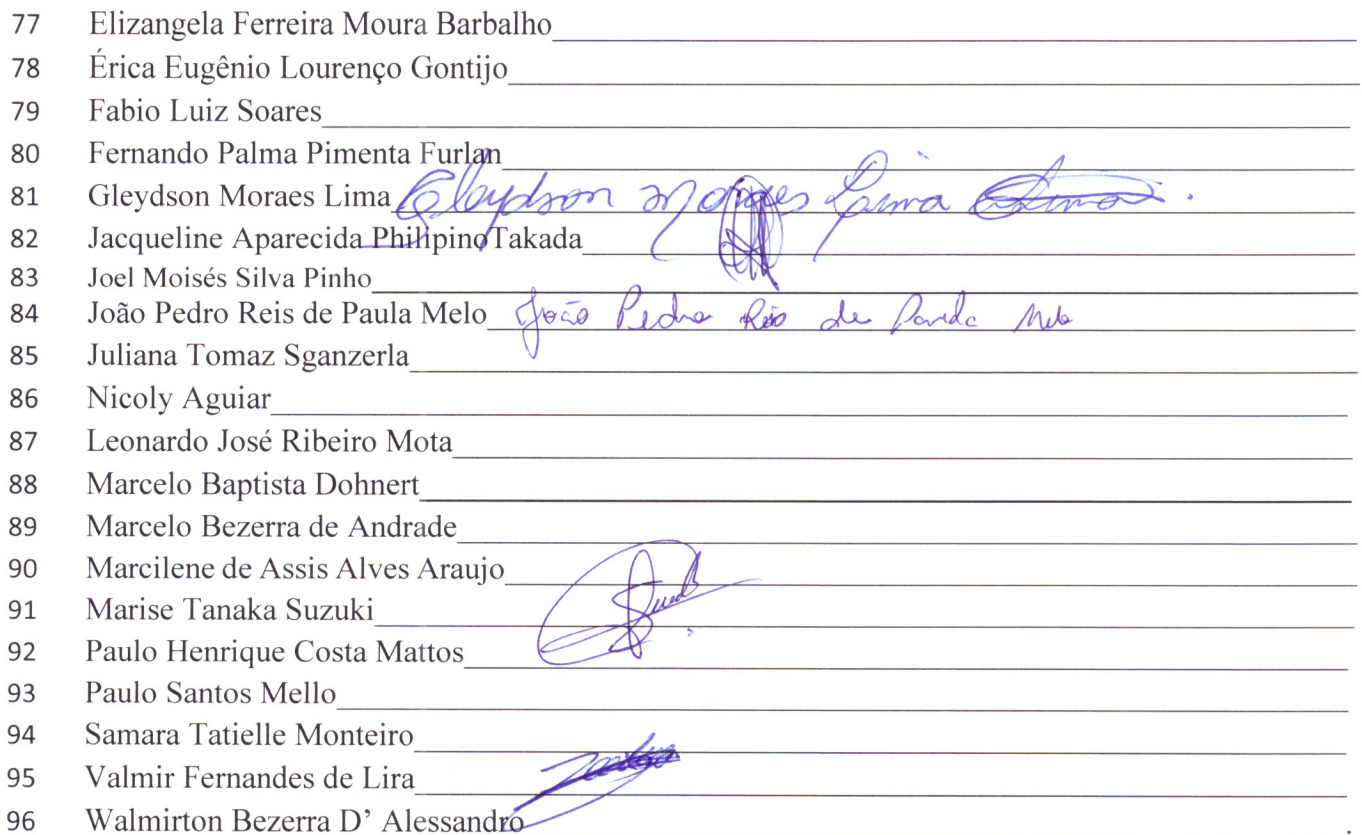 77 Elizangela Ferreira Moura Barbalho
78 Érica Eugênio Lourenço Gontijo
79 Fabio Luiz Soares
80 Fernando Palma Pimenta Furlan
81 Gleydson Moraes Lima Gleydson Moraes Lima
82 Jacqueline Aparecida PhilipinoTakada
83 Joel Moisés Silva Pinho
84 João Pedro Reis de Paula Melo João Pedro Reis de Paula Melo
85 Juliana Tomaz Sganzerla
86 Nicoly Aguiar
87 Leonardo José Ribeiro Mota
88 Marcelo Baptista Dohnert
89 Marcelo Bezerra de Andrade
90 Marcilene de Assis Alves Araujo
91 Marise Tanaka Suzuki
92 Paulo Henrique Costa Mattos
93 Paulo Santos Mello
94 Samara Tatielle Monteiro
95 Valmir Fernandes de Lira
96 Walmirton Bezerra D’ Alessandro.